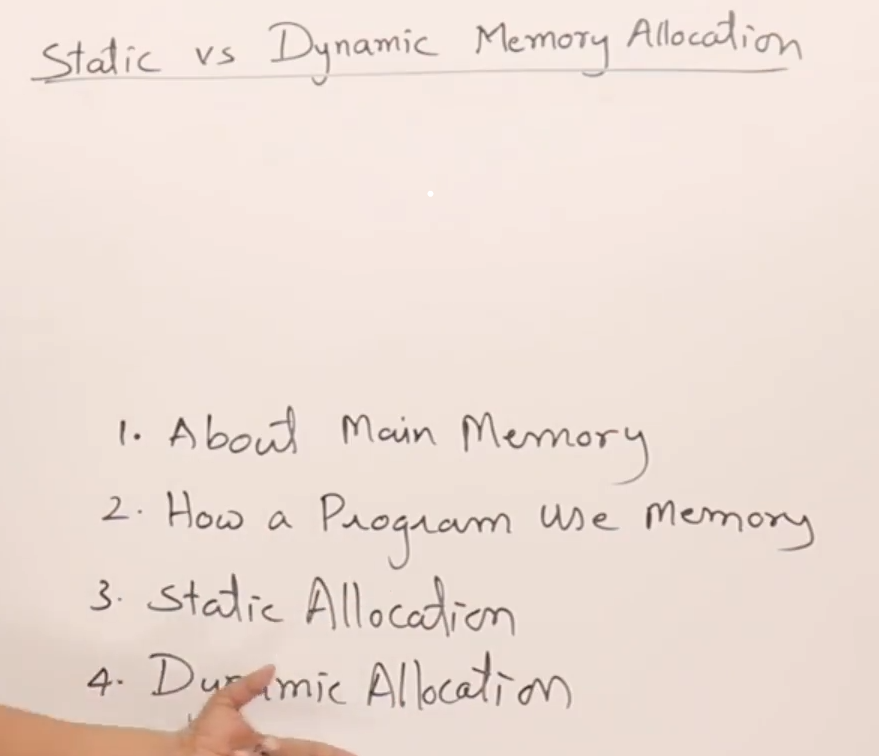 Static vs Dynamic Memory Allocation
1. About Main Memory
2. How a Program use Memory
3. Static Allocation
4. Dynamic Allocation